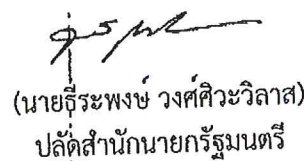 (นายธีระพงษ์ วงศ์ศิวะวิลาส)
ปลัดสำนักนายกรัฐมนตรี